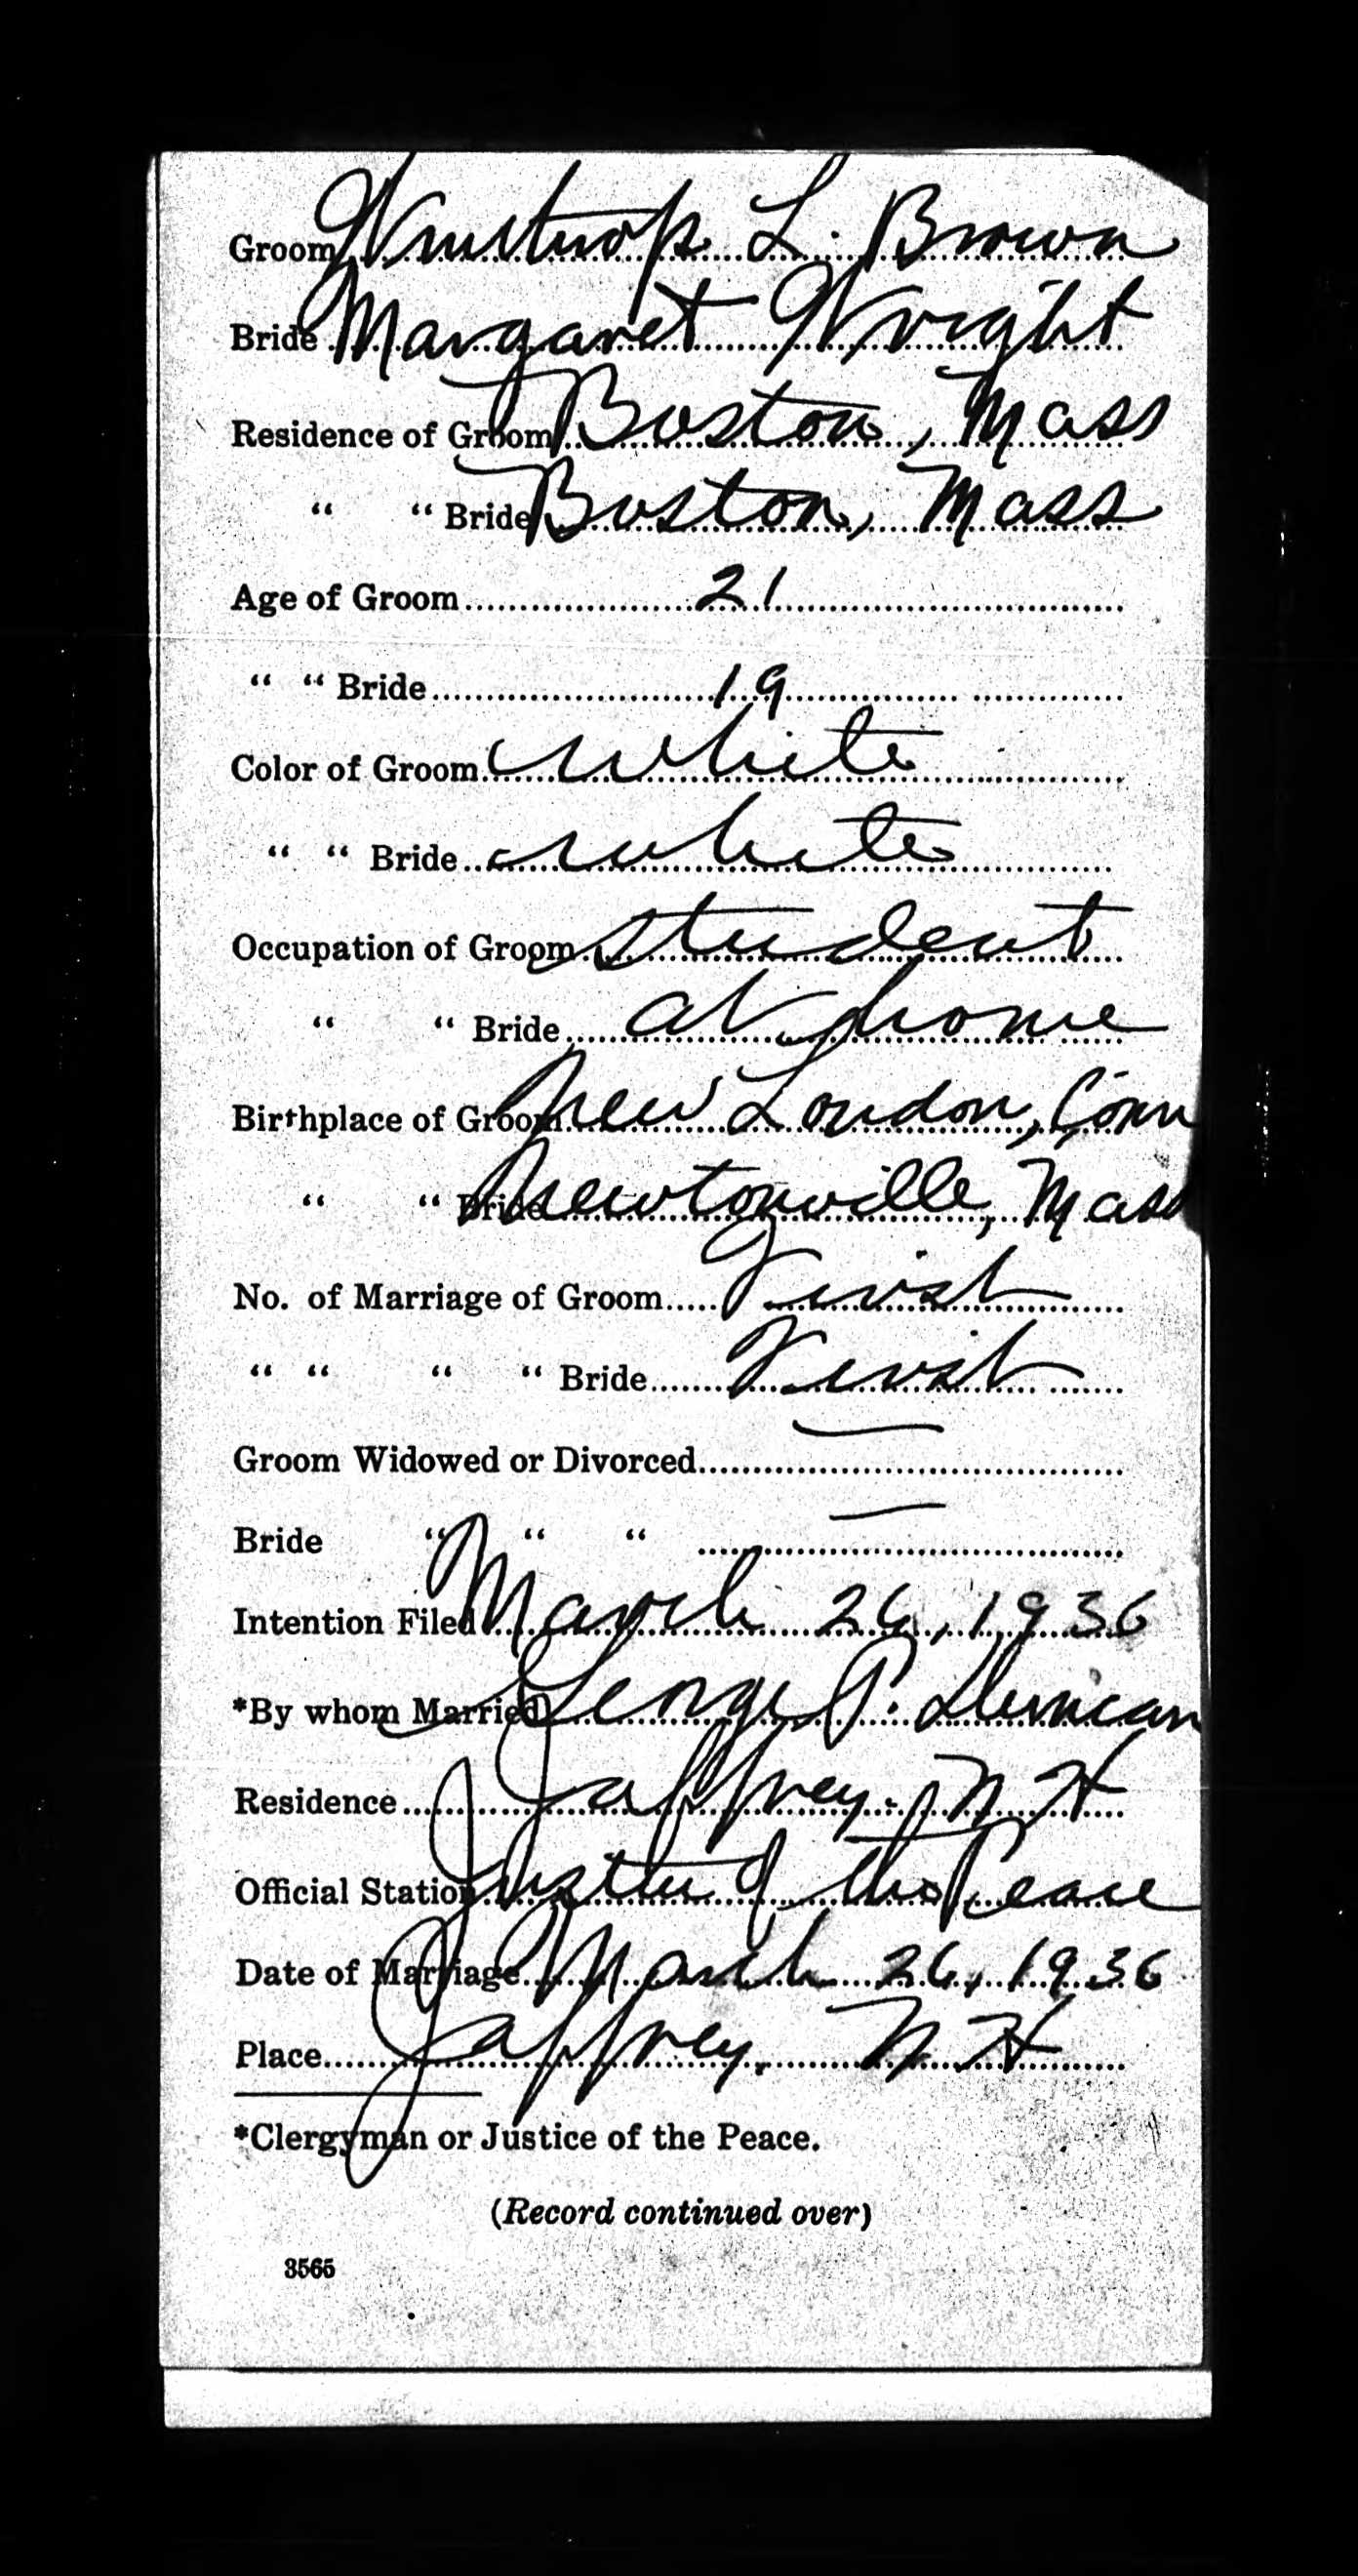 Groom Winthrop L. Brown
Bride Margaret Wright
Residence of Groom Boston, Mass
" " Bride Boston, Mass
Age of Groom 21
" " Bride 19
Color of Groom white
" " Bride white
Occupation of Groom student
" " Bride at home
Birthplace of Groom New London, Conn
" " Bride Newtonville, Mass
No. of Marriage of Groom First
" " " " Bride First
Groom Widowed or Divorced —
Bride " " " —
Intention Filed March 26, 1936
*By whom Married George P. Duncan
Residence Jaffrey. N H
Official Station Justice of the Peace
Date of Marriage March 26, 1936
Place Jaffrey, N H
*Clergyman or Justice of the Peace.
(Record continued over)
3565